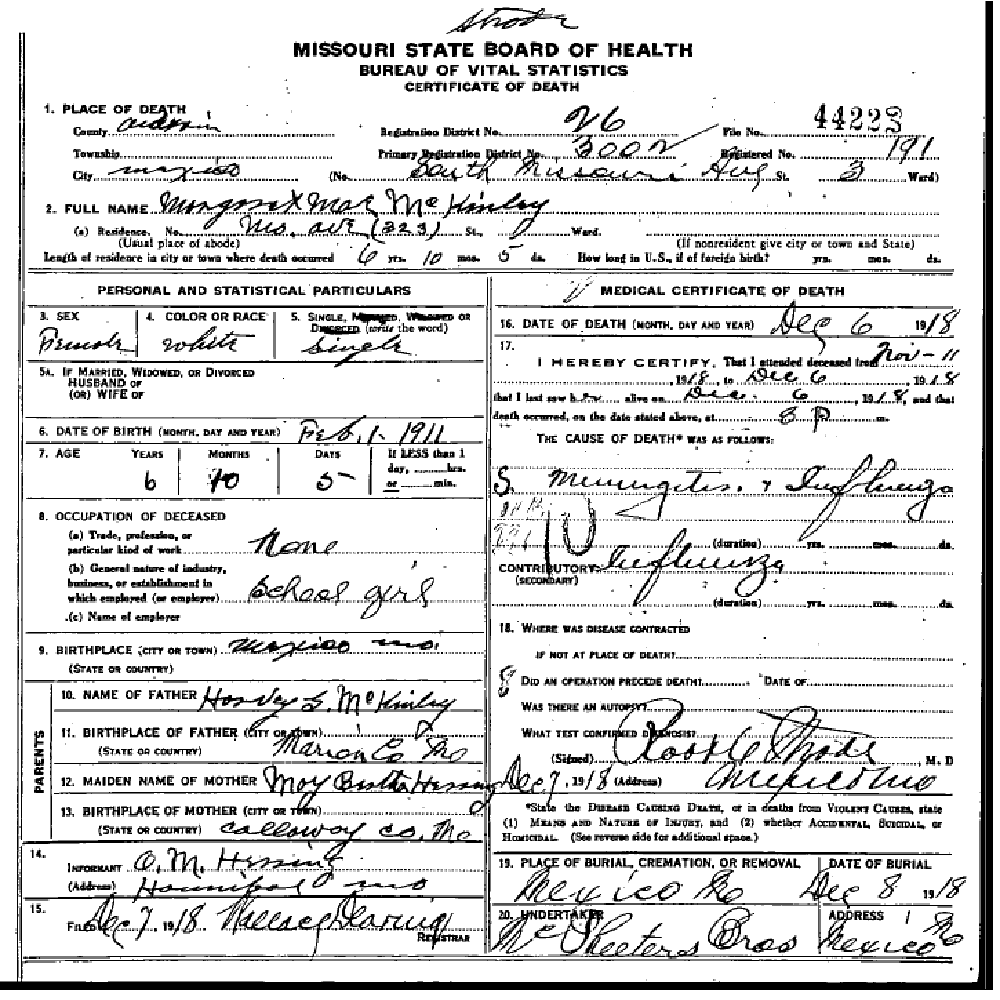 Strode
MISSOURI STATE BOARD OF HEALTH
BUREAU OF VITAL STATISTICS
CERTIFICATE OF DEATH
1. PLACE OF DEATH
County Audrain Registration District No. 26 File No. 44223
Township Primary Registration District No. 3002 Registered No. 191
City Mexico (No. South Missouri Ave St. 3 Ward)
2. FULL NAME Margaret Mae McKinley
(a) Residence. No. Mo. Ave (323) St., Ward.
(Usual place of abode) (If nonresident give city or town and State)
Length of residence in city or town where death occurred 6 yrs. 10 mos. 5 ds. How long in U.S., if of foreign birth? yrs. mos. ds.
PERSONAL AND STATISTICAL PARTICULARS
3. SEX 4. COLOR OR RACE 5. SINGLE, MARRIED, WIDOWED OR
DIVORCED (write the word)
Female white Single
5A. IF MARRIED, WIDOWED, OR DIVORCED
HUSBAND OF
(OR) WIFE OF
6. DATE OF BIRTH (MONTH, DAY AND YEAR) Feb. 1. 1911
7. AGE YEARS MONTHS DAYS If LESS than 1
day, hrs.
or min.
6 10 5
8. OCCUPATION OF DECEASED
(a) Trade, profession, or
particular kind of work None
(b) General nature of industry,
business, or establishment in
which employed (or employer) School girl
(c) Name of employer
9. BIRTHPLACE (CITY OR TOWN) Mexico Mo.
(STATE OR COUNTRY)
PARENTS
10. NAME OF FATHER McKinley
11. BIRTHPLACE OF FATHER (CITY OR TOWN)
(STATE OR COUNTRY) Marion Co Mo
12. MAIDEN NAME OF MOTHER May
13. BIRTHPLACE OF MOTHER (CITY OR TOWN)
(STATE OR COUNTRY) Calloway Co. Mo
14.
INFORMANT O. M.
(Address) Hannibal Mo
15.
FILED Dec 7, 1918. Wallace Dearing
REGISTRAR
MEDICAL CERTIFICATE OF DEATH
16. DATE OF DEATH (MONTH, DAY AND YEAR) Dec 6 1918
17.
I HEREBY CERTIFY, That I attended deceased from Nov-11
, 1918, to Dec 6, 1918
that I last saw her alive on Dec. 6, 1918, and that
death occurred, on the date stated above, at 8 P m.
THE CAUSE OF DEATH* WAS AS FOLLOWS:
Meningitis. & Influenza
(duration) yrs. mos. ds.
CONTRIBUTORY Influenza
(SECONDARY)
(duration) yrs. mos. ds.
18. WHERE WAS DISEASE CONTRACTED
IF NOT AT PLACE OF DEATH?
DID AN OPERATION PRECEDE DEATH? DATE OF
WAS THERE AN AUTOPSY?
WHAT TEST CONFIRMED DIAGNOSIS?
(Signed) Strode, M. D
Dec 7, 1918 (Address) Mexico Mo
*State the DISEASE CAUSING DEATH, or in deaths from VIOLENT CAUSES, state
(1) MEANS AND NATURE OF INJURY, and (2) whether ACCIDENTAL, SUICIDAL, or
HOMICIDAL. (See reverse side for additional space.)
19. PLACE OF BURIAL, CREMATION, OR REMOVAL DATE OF BURIAL
Mexico Mo Dec 8 1918
20. UNDERTAKER ADDRESS
McPheeters Bros Mexico Mo